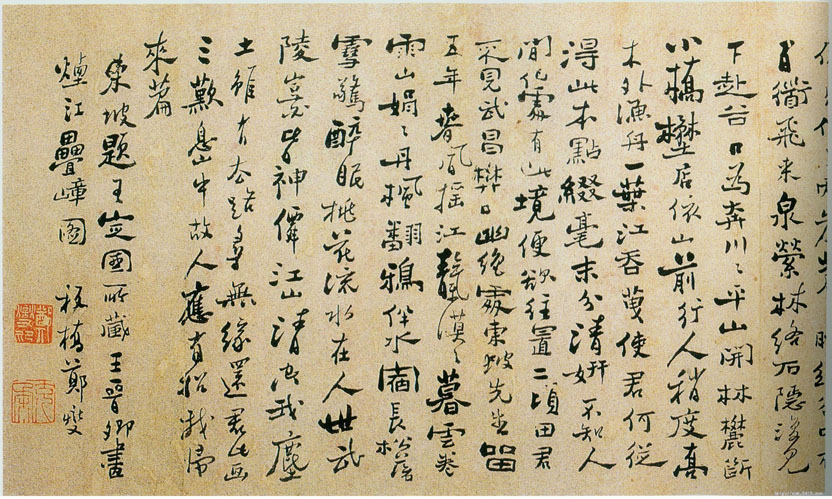 百衜飛来泉縈林絡石隱復見
下赴谷口為奔川〻平山開林麓斷
小橋壄店依山前行人稍度喬
木外漁舟一葉江吞使君何從
得此本點綴毫末分清妍不知人
間何處有此境便欲往置二頃田君
不見武昌樊口幽絶處東坡先生留
五年春風摇江靝漠〻暮雲卷
雨山娟〻丹楓翻鴉伴水宿長松落
雪驚醉眠桃花流水在人世武
陵豈皆神僊江山清空我塵
土雖有去路尋無緣還君此畫
三歎息山中故人應有招我歸
來篇
東坡題王定國所藏王晉卿畫
煙江疊嶂圖 板橋鄭燮